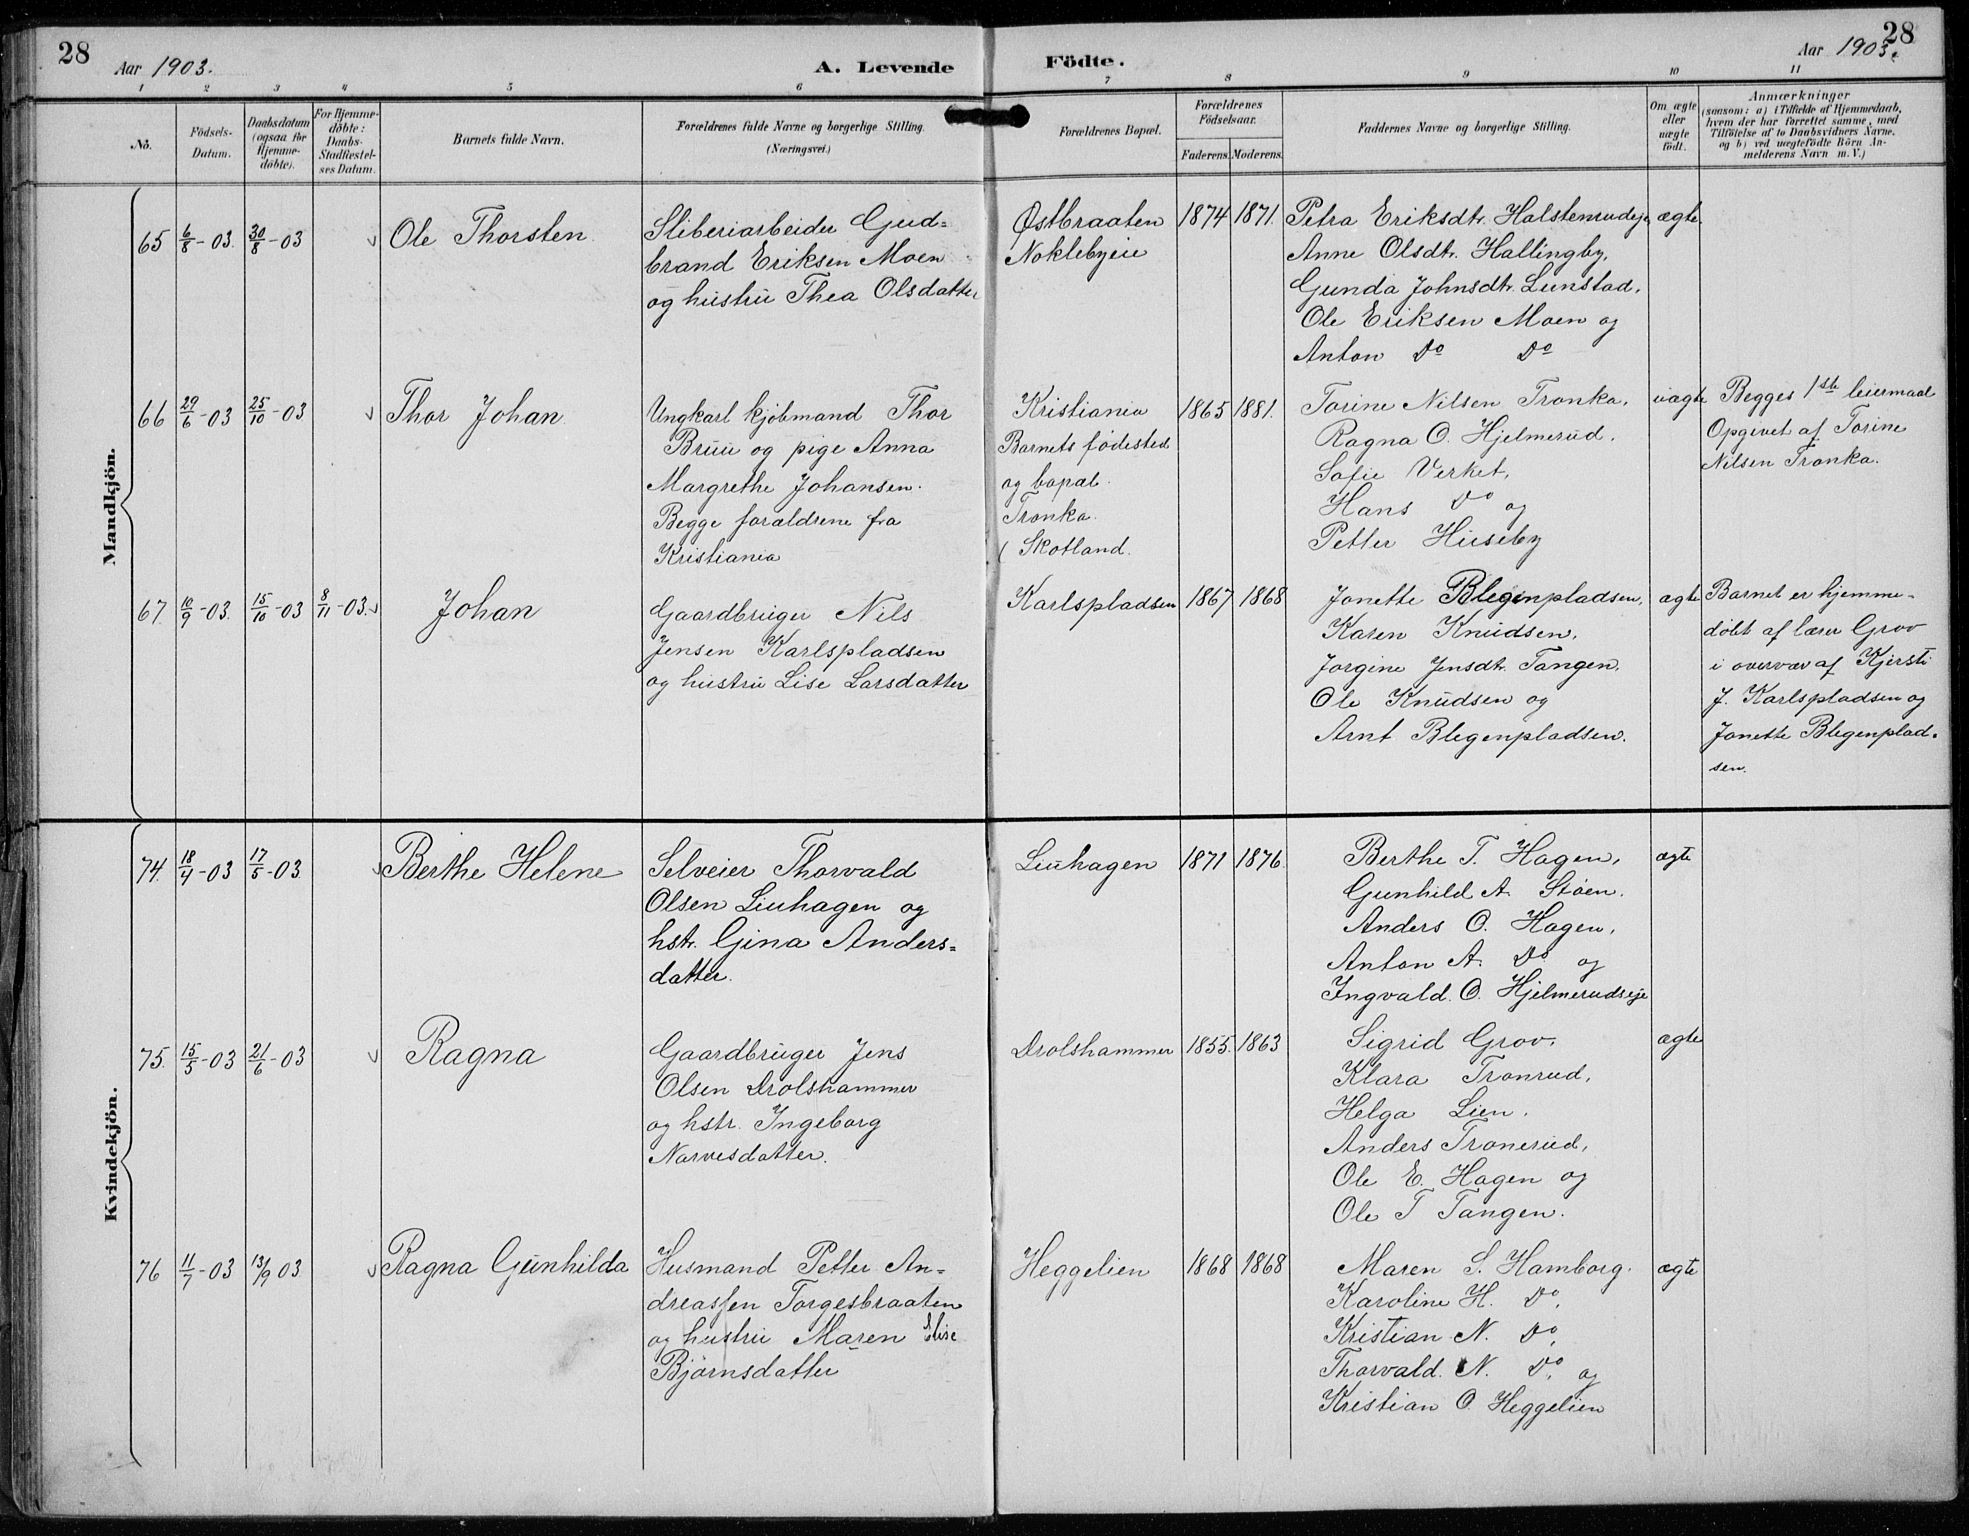 28
Aar 1903.
A. Levende
Födte.
Aar 1903.
28
1 2 3 4 5 6 7 8 9 10 11
No.
Födsels-
Datum.
Daabsdatum
(ogsaa for
Hjemme-
döbte).
For Hjemme-
döbte:
Daabs-
Stadfæstel-
ses Datum.
Barnets fulde Navn.
Forældrenes fulde Navne og borgerlige Stilling.
(Næringsvei.)
Forældrenes Bopæl.
Forældrenes
Födselsaar.
Faderens.
Moderens.
Faddernes Navne og borgerlige Stilling.
Om ægte
eller
uægte
födt.
Anmærkninger
(saasom: a) i Tilfælde af Hjemmedaab,
hvem der har forrettet samme, med
Tilföielse af to Daabsvidners Navne.
og b) ved uægtefödte Börn An-
melderens Navn m. V.)
Mandkjön.
65 6/8-03. 30/8-03 Ole Thorsten
Sliberiarbeider Gud=
brand Eriksen Moen
og hustru Thea Olsdatter
Østbraaten
Noklebyeie
1874 1871.
Petra Eriksdtr. Halstenrudeje,
Anne Olsdtr. Hallingby,
Gunda Johnsdtr. Lunstad,
Ole Eriksen Moen og
Anton Do Do
ægte
66 29/6-03 25/10-03 Thor Johan
Ungkarl kjøbmand Thor
Bruu og pige Anna
Margrethe Johansen.
Begge forældrene fra
Kristiania
Kristiania
Barnets fødested
og bopæl.
Tronka.
( Skotland.
1865 1881.
Torine Nilsen Tronka,
Ragna O. Hjelmerud.
Sofie Verket,
Hans Do og
Petter Huseby
uægte
Begges 1ste leiermaal
Opgevet af Torine
Nilsen Tronka.
67 10/9-03. 15/10-03 8/11-03. Johan
Gaardbruger Nils
Jensen Karlspladsen
og hustru Lise Larsdatter
Karlspladsen
1867 1868
Jonette Blegenpladsen,
Karen Knudsen,
Jorgine Jensdtr. Tangen.
Ole Knudsen og
Arnt Blegenpladsen.
ægte
Barnet er hjemme-
døbt af lærer Grov
i overvær af Kjersti
J. Karlspladsen og
Jonette Blegenplad-
sen.
Kvindekjön.
74. 18/4-03 17/5-03. Berthe Helene
Selveier Thorvald
Olsen Liuhagen og
hstr. Gina Anders=
datter.
Liuhagen
1871 1876.
Berthe T. Hagen,
Gunhild A. Støen.
Anders O. Hagen,
Anton A. Do og
Ingvald. O. Hjelmerudseje
ægte
75. 15/5-03 21/6-03 Ragna
Gaardbruger Jens
Olsen Drolshammer
og hstr. Ingeborg
Narvesdatter.
Drolshammer
1855. 1863
Sigrid Grov.
Klara Tronrud,
Helga Lien.
Anders Tronerud,
Ole E. Hagen og
Ole T Tangen.
ægte
76 11/7-03 13/9 03 Ragna Gunhilda
Husmand Petter An=
dreassen Torgesbraaten
og hustru Maren Elise
Bjørnsdatter
Heggelien
1868 1868
Maren S. Hamborg.
Karoline H. Do,
Kristian N. Do,
Thorvald. N. Do, og
Kristian O. Heggelien
ægte